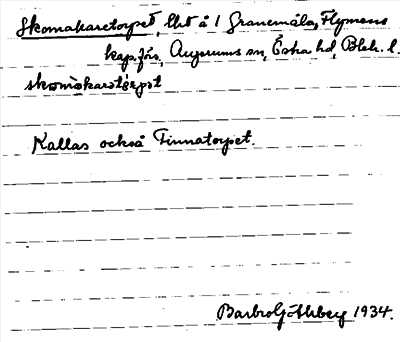 Skomakaretorpet, lht å 1 Granemåla, Flymens
kap.förs, Augerums sn, Östra hd, Blek. l.
skomakarstorpet
Kallas också Finnatorpet.
Barbro Göthberg 1934.